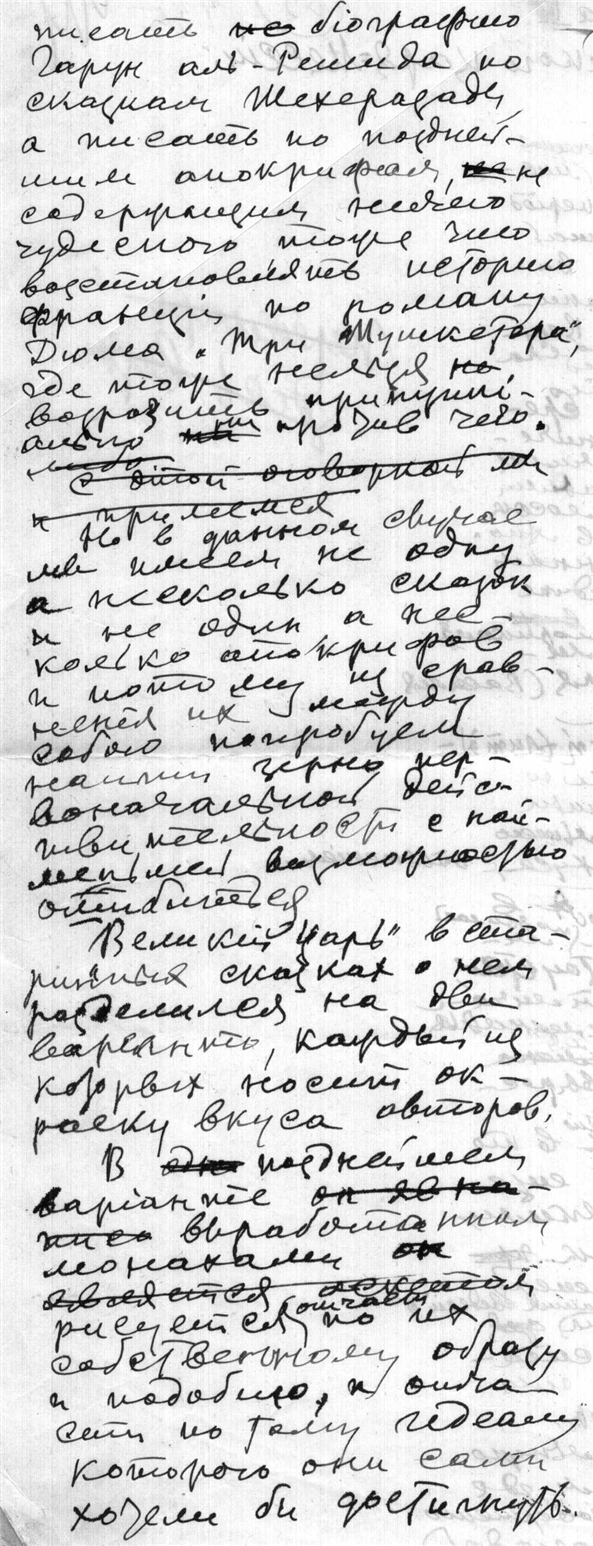 писать не біографию
Гарун аль-Решида по
сказкам Шехеразады,
а писать по поздней-
шим апокрифам, не не
содержащим ничего
чудесного тоже что
возстановлять историю
Франціи по роману
Дюма „Три Мушкетера",
где тоже нельзя не
возразить принципі-
ально ни против чего-
либо
С этой оговоркой мы
и примемся
Но в данном случае
мы имеем не одну
а несколько сказок
и не один а нес-
колько апокрифов
и потому из срав-
ненія их между
собою попробуем
найти зерно пер-
воначальной дейс-
твительности с наи-
меньшей возможностью
ошибиться
"Великій Царь" в ста-
ринных сказках о нем
разделился на две
варіанты, каждый из
которых носит ок-
раску вкуса авторов.
В позднейшем
варіанте он явна-
выработанном
монахами он
является аскетом
рисуется отчасти по их
собственному образу
и подобию, и отча-
сти по тому идеалу
которого они сами
хотели бы достигнуть.